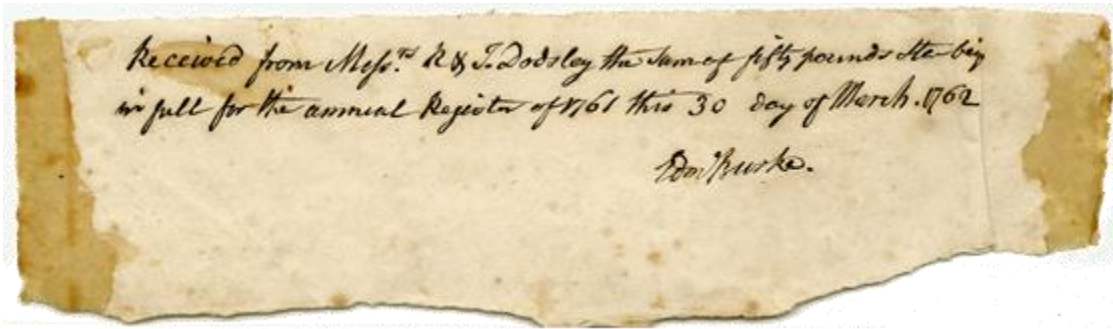 Received from Messrs R & J. Dodsley the Sum of fifty pounds it being
in full for the annual Register of 1761 this 30 day of March. 1762
Edm Burke.